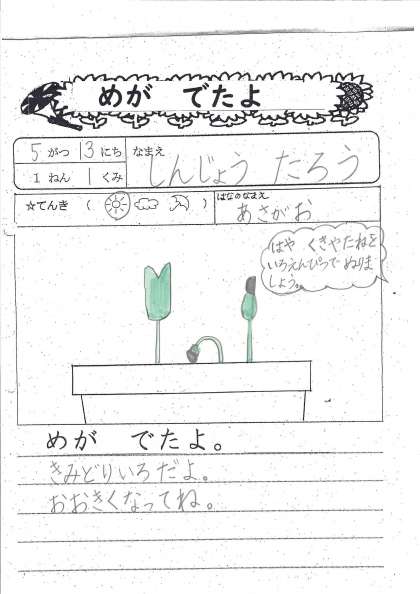 めが でたよ
5 がつ 13 にち
なまえ
しんじょう たろう
1 ねん 1 くみ
☆てんき ( )
はなのなまえ
あさがお
はや くきやたねを
いろえんぴつで ぬりま
しょう。
めが でたよ。
きみどりいろだよ。
おおきくなってね。